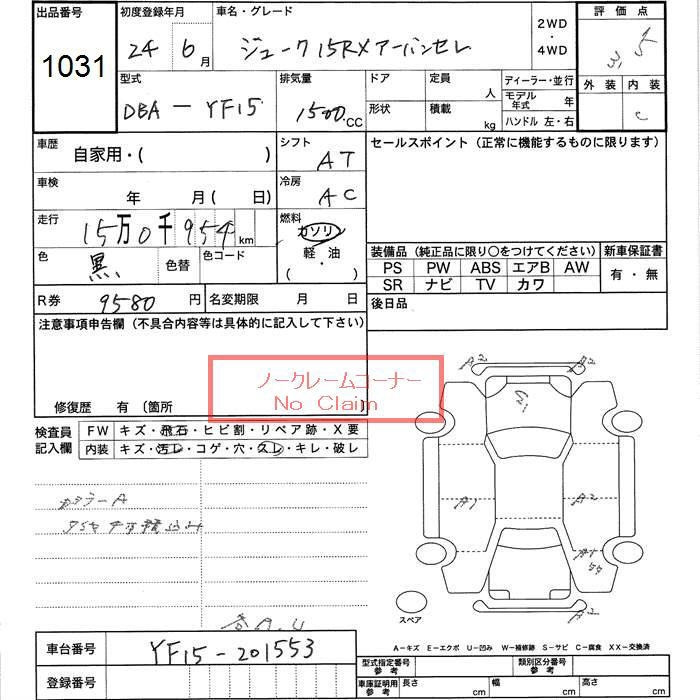 出品番号 初度登録年月 車名・グレード 2WD・4WD 評価点
1031 24 6月 ジューク 15RX アーバンセレ 3.5
型式 排気量 ドア 定員 人 ディーラー・並行 外装 内装
DBA - YF15 1500cc 形状 積載 kg モデル年式 年 C
ハンドル 左・右
車歴 自家用・( ) シフト AT セールスポイント(正常に機能するものに限ります)
車検 年 月( 日) 冷房 AC
走行 15万0千954km 燃料 ガソリン
軽・油
( ・ )
色 黒 色替 色コード 装備品(純正品に限り〇をつけてください) 新車保証書
PS PW ABS エアB AW 有・無
SR ナビ TV カワ
R券 9580円 名変期限 月 日 後日品
注意事項申告欄(不具合内容等は具体的に記入して下さい)
ノークレームコーナー
No Claim
修復歴 有〔箇所 〕
検査員記入欄 FW キズ・飛石・ヒビ割・リペア跡・X要
内装 キズ・汚レ・コゲ・穴・スレ・キレ・破レ
A2 A2
A1 A2
A2
スペア
車台番号 YF15-201553
A-キズ E-エクボ U-凹み W-補修跡 S-サビ C-腐食 XX-交換済
登録番号 型式指定番号 参考 類別区分番号 参考
車庫証明用 参考 長さ cm 幅 cm 高さ cm